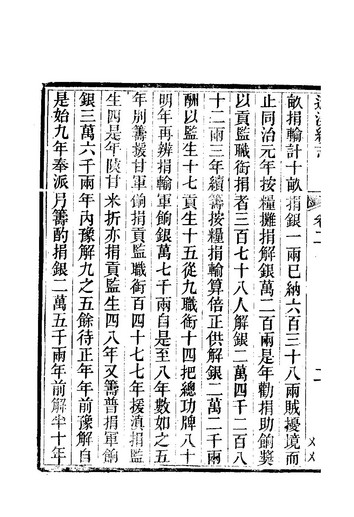 畝捐輸計十畝捐銀一兩已納六百三十八兩賊擾境而
止同治元年按糧攤捐解銀萬二百兩是年勸捐助餉獎
以貢監職銜捐者三百七十八人解銀二萬四千二百八
十二兩三年續籌按糧捐輸算倍正供解銀二萬二千兩
酬以監生十七貢生十五從九職銜十四把總功牌八十
明年再辨捐輸軍餉銀萬七千兩自是至八年數如之五
年別籌援甘軍餉捐貢監職銜百四十七七年援滇捐監
生四是年陝甘米折亦捐貢監生四八年又籌普捐軍餉
銀三萬六千兩年內豫解九之五餘待正年年前豫解自
是始九年奉派月籌酌捐銀二萬五千兩年前解半十年
卷二
二